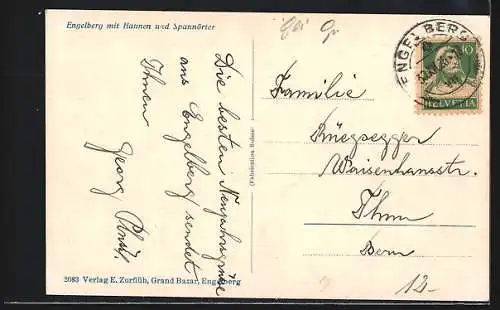 Engelberg mit Hannen und Spannörter
ENGELBERG
10
HELVETIA
Die besten Neujahrsgrüsse
aus Engelberg sendet
Ihnen
Georg
Familie
Rüegsegger
Waisenhausstr.
Thun
Bern
12.-
2083 Verlag E. Zurflüh, Grand Bazar, Engelberg